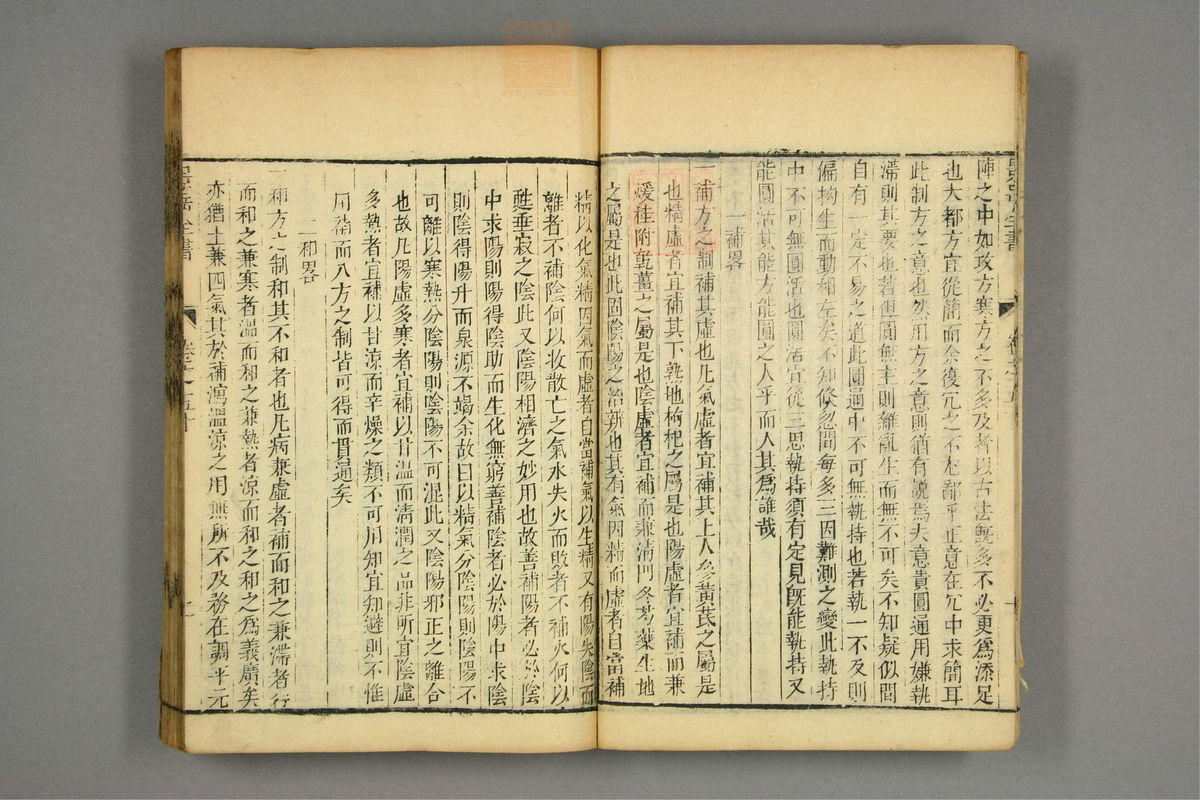 陣之中如攻方寒方之不多及者以古法旣多不必更爲添足
也大都方宜從簡而余復冗之不尤鄙乎正意在冗中求簡耳
此制方之意也然用方之意則猶有說焉夫意貴圓通用嫌執
滯則其要也若但圓無主則雜亂生而無不可矣不知疑似間
自有一定不易之道此圓通中不可無執持也若執一不反則
偏拘生而動相左矣不知倏忽間每多三因難測之變此執持
中不可無圓活也圓活宜從三思執持須有定見旣能執持又
能圓活其能方能圓之人乎而人其爲誰哉
一補畧
一補方之制補其虛也凡氣虛者宜補其上人參黃芪之屬是
也精虛者宜補其下熟地枸杞之屬是也陽虛者宜補而兼
煖桂附乾薑之屬是也陰虛者宜補而兼清門冬芍藥生地
之屬是也此固陰陽之治辨也其有氣因精而虛者自當補
精以化氣精因氣而虛者自當補氣以生精又有陽失陰而
離者不補陰何以收散亡之氣水失火而敗者不補火何以
甦垂寂之陰此又陰陽相濟之妙用也故善補陽者必於陰
中求陽則陽得陰助而生化無窮善補陰者必於陽中求陰
則陰得陽升而泉源不竭余故曰以精氣分陰陽則陰陽不
可離以寒熱分陰陽則陰陽不可混此又陰陽邪正之離合
也故凡陽虛多寒者宜補以甘溫而清潤之品非所宜陰虛
多熱者宜補以甘涼而辛燥之類不可用知宜知避則不惟
用補而八方之制皆可得而貫通矣
二和畧
一和方之制和其不和者也凡病兼虛者補而和之兼滯者行
而和之兼寒者溫而和之兼熱者涼而和之和之爲義廣矣
亦猶土兼四氣其於補瀉溫涼之用無所不及務在調平元
景岳全書